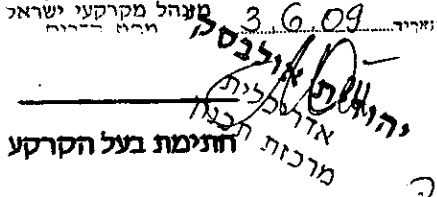 מנהל מקרקעי ישראל
תאריך 3.6.09
יהודית אולבסקי
אדריכלית
מרכזת תכנון
חתימת בעל הקרקע